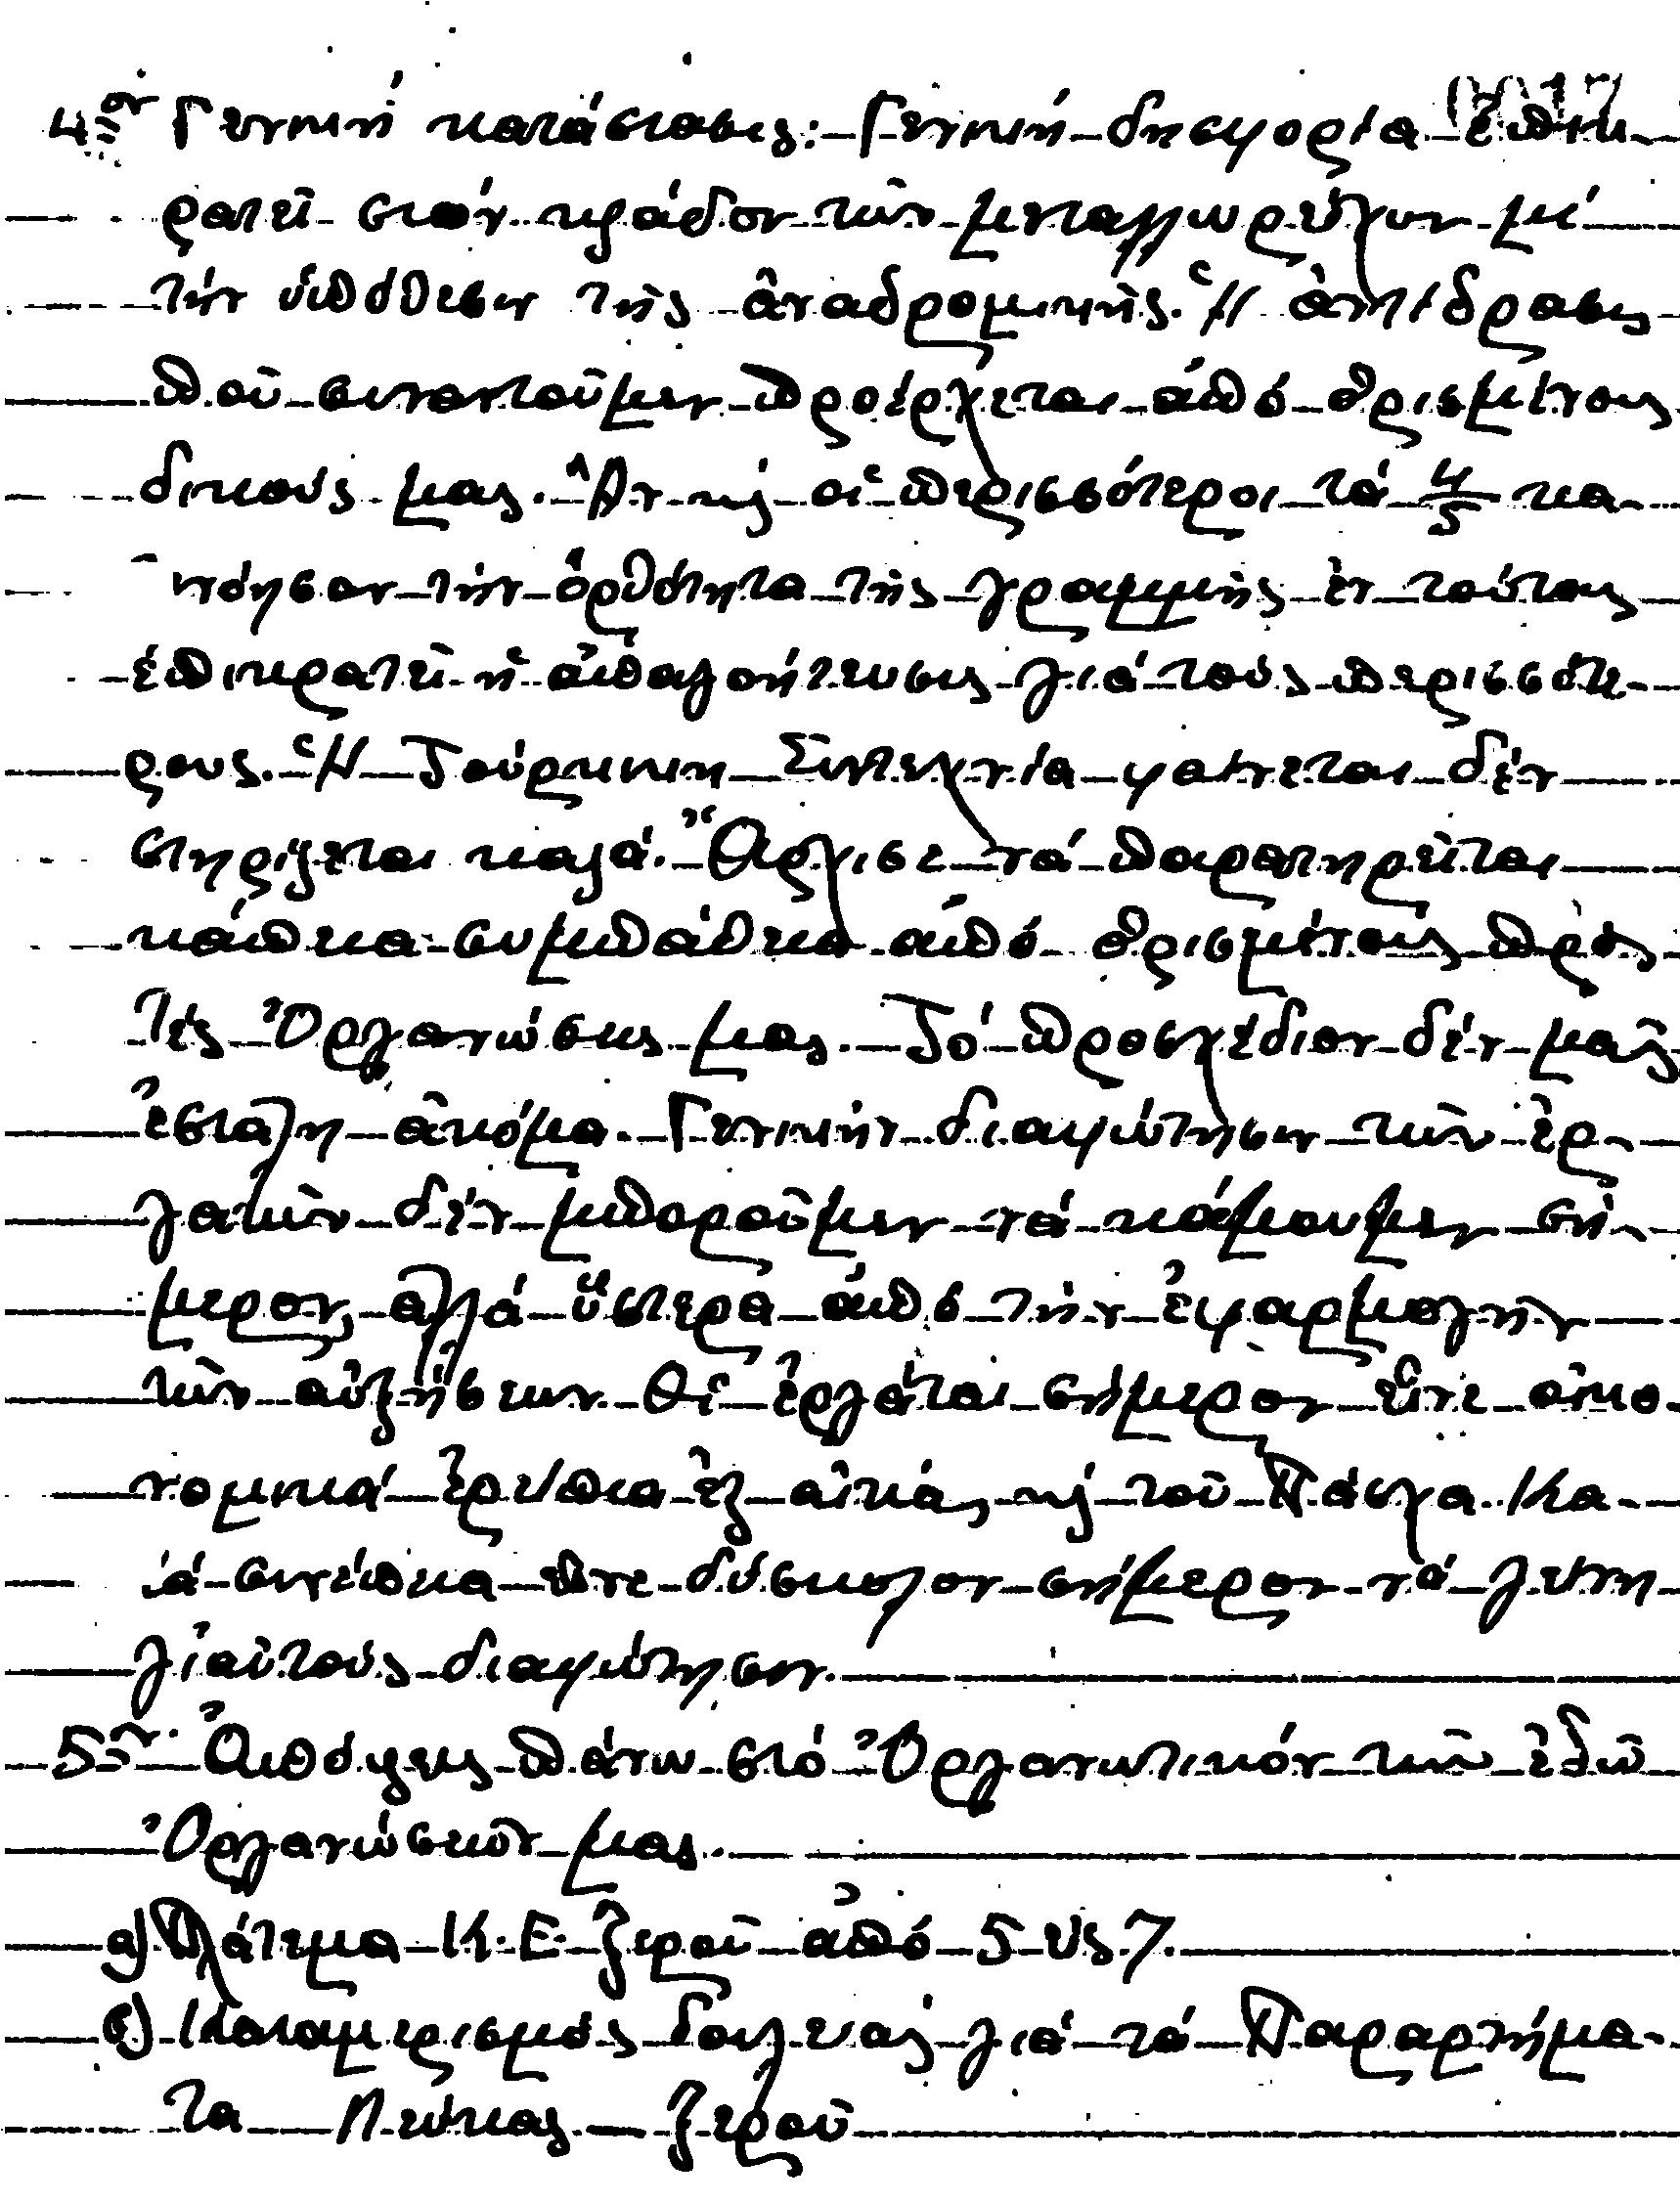 4ον Γενική κατάστασις: Γενική δυσφορία ἐπικ-
ρατεῖ στόν κλάδον τῶν μεταλλωρύχων μέ
τήν ὑπόθεσιν τῆς ἀναδρομικῆς. Ἡ ἀντίδρασις
ποῦ συναντοῦμεν προέρχεται ἀπό ὁρισμένους
δικούς μας. Ἄν κ̀ οἱ περισσότεροι τά 4/5 κα
νόησαν τήν ὀρθότητα τῆς γραμμῆς ἐν τούτοις
ἐπικρατεῖ ἡ ἀπαγοήτευσις γιά τούς περισσότε-
ρους. Ἡ Τούρκικη Συντεχνία φαίνεται δέν
στηρίζεται καλά. Ἄρχισε νά παρατηρεῖται
κάποια συμπάθεια ἀπό ὁρισμένους πρός
τές Ὀργανώσεις μας. Τό προσχέδιον δέν μᾶς
ἐστάλη ἀκόμα. Γενικήν διαφώτησιν τῶν ἐρ-
γατῶν δέν μποροῦμεν νά κάμουμεν σή-
μερον, ἀλλά ὕστερα ἀπό τήν ἐφαρμογήν
τῶν αὐξήσεων. Οἱ ἐργάται σήμερον εἶνε οἰκο
νομικά ἐρείπια ἐξ αἰτίας κ̀ τοῦ Πάσχα. Κα
τά συνέπεια εἶνε δύσκολον σήμερον νά γείνη
γι᾽ αὐτούς διαφώτησιν.
5ον. Ἀπόψεις πάνω στό Ὀργανωτικόν τῶν ἐδῶ
Ὀργανώσεων μας.
α) Πλάτεμα Κ.Ε. Ξεροῦ ἀπό 5 εἰς 7.
β) Καταμερισμός δουλειᾶς γιά τά Παραρτήμα-
τα Λεύκας – Ξεροῦ